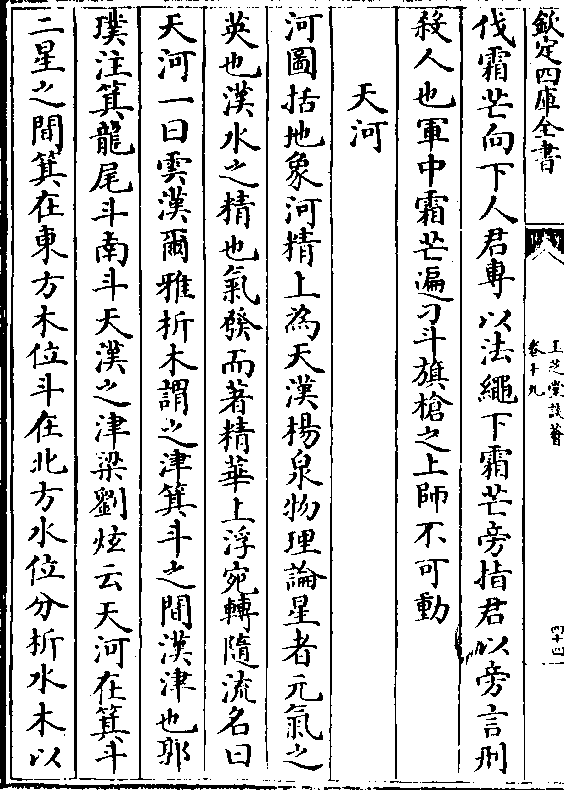 欽定四庫全書
玉芝堂談薈
卷十九
四十四
伐霜芒向下人君專以法繩下霜芒旁指君以旁言刑
殺人也軍中霜芒遍刁斗旗槍之上師不可動
天河
河圖括地象河精上為天漢楊泉物理論星者元氣之
英也漢水之精也氣發而著精華上浮宛轉隨流名曰
天河一曰雲漢爾雅析木謂之津箕斗之間漢津也郭
璞注箕龍尾斗南斗天漢之津梁劉炫云天河在箕斗
二星之間箕在東方木位斗在北方水位分析水木以